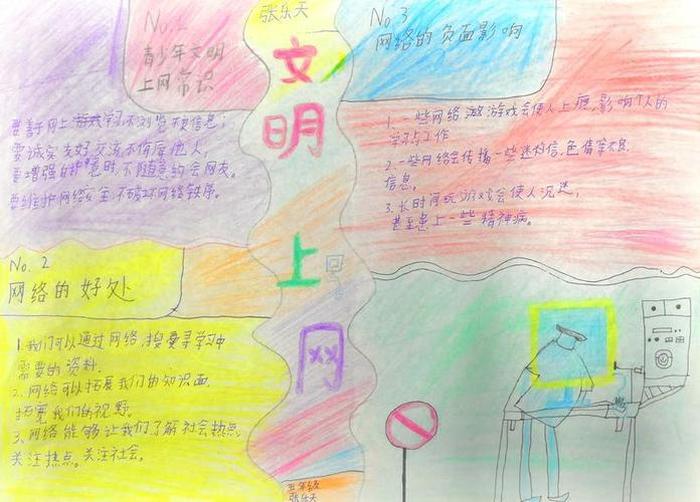 张乐天
文
明
上
网
五年级
张乐天
No.1
青少年文明
上网常识
要善于网上学习不浏览不良信息;
要诚实友好交流不侮辱他人,
要增强自护意识,不随意约会网友。
要维护网络安全,不破坏网络秩序。
No.2
网络的好处
1.我们可以通过网络,搜寻学习中
需要的资料.
2.网络可以拓展我们的知识面,
拓宽我们的视野.
3.网络能够让我们了解社会热点,
关注热点。关注社会。
No3
网络的负面影响
1.一些网络游戏会使人上瘾,影响个人的
学习与工作
2.一些网络会传播一些迷信,色情等不良
信息。
3.长时间玩游戏会使人沉迷,
甚至患上一些精神病。